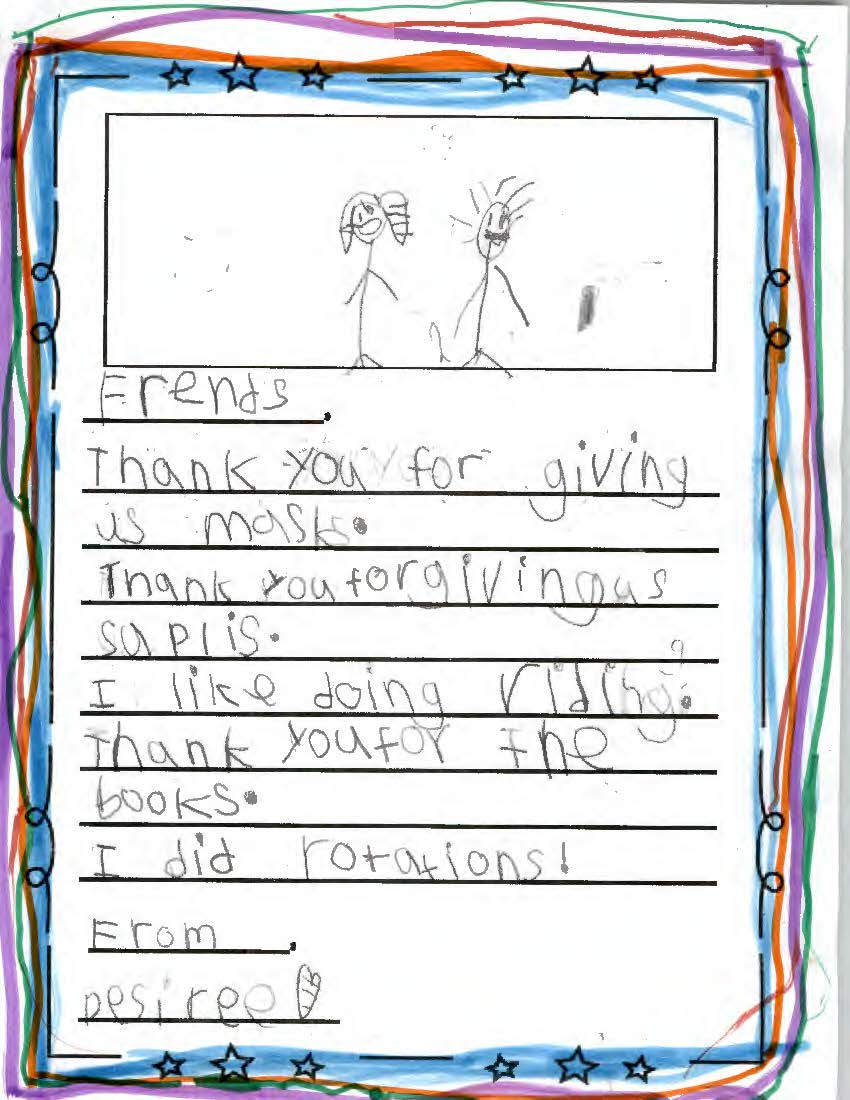 Frends,
Thank you for giving
us masks.
Thank you for giving us
suplis.
I like doing riding.
Thank you for the
books.
I did rotations!
From,
Desiree